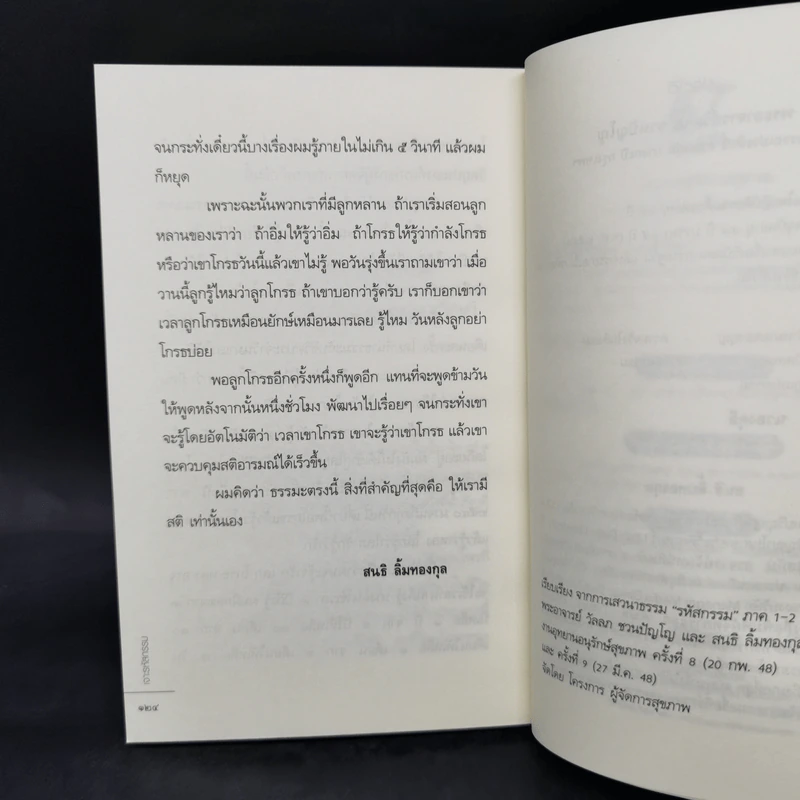 จนกระทั่งเดี๋ยวนี้บางเรื่องผมรู้ภายในไม่เกิน ๕ วินาที แล้วผม
ก็หยุด
เพราะฉะนั้นพวกเราที่มีลูกหลาน ถ้าเราเริ่มสอนลูก
หลานของเราว่า ถ้าอิ่มให้รู้ว่าอิ่ม ถ้าโกรธให้รู้ว่ากำลังโกรธ
หรือว่าเขาโกรธวันนี้แล้วเขาไม่รู้ พอวันรุ่งขึ้นเราถามเขาว่า เมื่อ
วานนี้ลูกรู้ไหมว่าลูกโกรธ ถ้าเขาบอกว่ารู้ครับ เราก็บอกเขาว่า
เวลาลูกโกรธเหมือนยักษ์เหมือนมารเลย รู้ไหม วันหลังลูกอย่า
โกรธบ่อย
พอลูกโกรธอีกครั้งหนึ่งก็พูดอีก แทนที่จะพูดข้ามวัน
ให้พูดหลังจากนั้นหนึ่งชั่วโมง พัฒนาไปเรื่อยๆ จนกระทั่งเขา
จะรู้โดยอัตโนมัติว่า เวลาเขาโกรธ เขาจะรู้ว่าเขาโกรธ แล้วเขา
จะควบคุมสติอารมณ์ได้เร็วขึ้น
ผมคิดว่า ธรรมะตรงนี้ สิ่งที่สำคัญที่สุดคือ ให้เรามี
สติ เท่านั้นเอง
สนธิ ลิ้มทองกุล
เจารหัสกรรม
๑๒๔
เรียบเรียง จากการเสวนาธรรม "รหัสกรรม" ภาค 1-2
พระอาจารย์ วัลลภ ชวนปัญโญ และ สนธิ ลิ้มทองกุล
งานอุทยานอนุรักษ์สุขภาพ ครั้งที่ 8 (20 กพ. 48)
และ ครั้งที่ 9 (27 มี.ค. 48)
จัดโดย โครงการ ผู้จัดการสุขภาพ